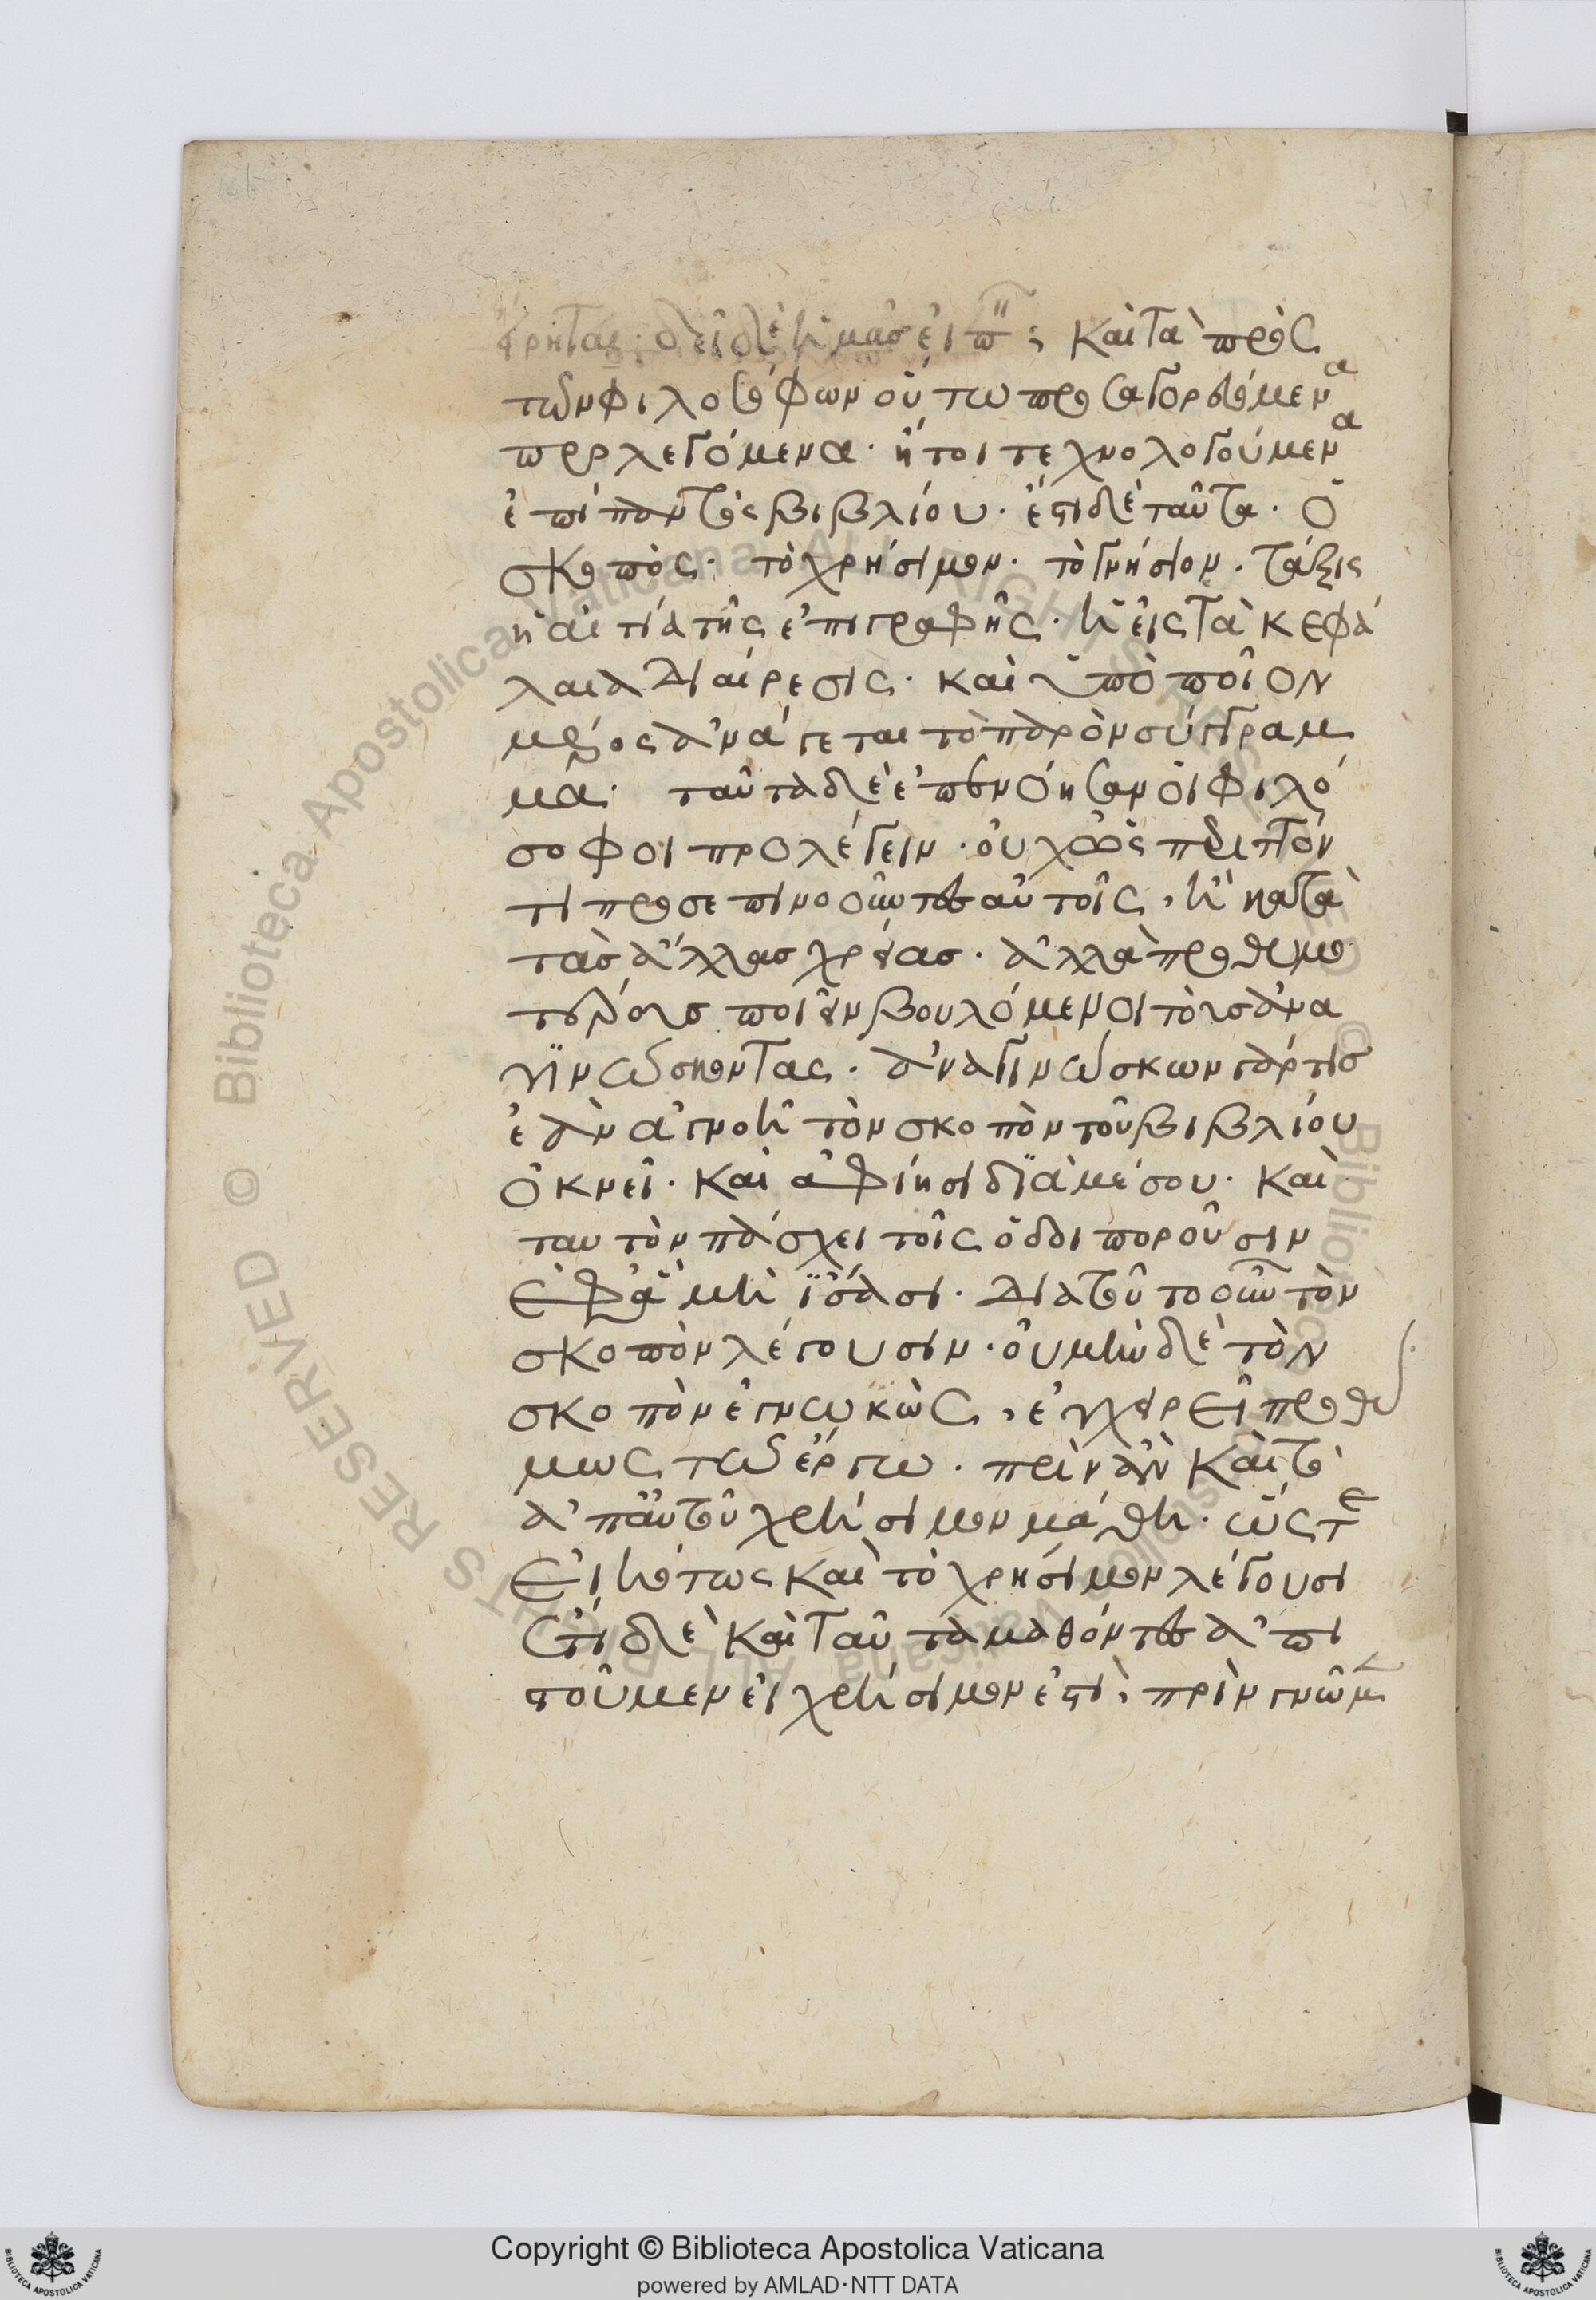 εἴρηται· δεῖ δὲ ἡμᾶς εἰπ καὶ τὰ πρὸς
τῶν φιλοσόφων οὕτω προσαγορευόμενα
προλεγόμενα· ἤτοι τεχνολογούμενα
ἐπὶ παντὸς βιβλίου· ἔστι δὲ ταῦτα· ὁ
σκοπὸς· τὸ χρήσιμον· τὸ γνήσιον· τάξις
ἡ αἰτία τῆς ἐπιγραφῆς· ἡ εἰς τὰ κεφά
λαια διαίρεσις· καὶ ὑπὸ ποῖον
μέρος ἀνάγεται τὸ παρὸν σύγγραμ
μα· ταῦτα δὲ ἐπενόησαν οἱ φιλό
σοφοι προλέγειν· οὐχ ὡς περιττόν
τι προσεπινοοῦντες αὐτοῖς, ἢ κατὰ
τὰς ἄλλας χρείας· ἀλλὰ προθυμο
τέρους ποιεῖν βουλόμενοι τοὺς ἀνα
γινώσκοντας· ἀναγινώσκων γάρ τις
ἐὰν ἀγνοῇ τὸν σκοπὸν τοῦ βιβλίου
ὀκνεῖ· καὶ ἀφίησι διὰ μέσου· καὶ
ταυτὸν πάσχει τοῖς ὁδοιποροῦσιν
ἐφ' ἃ μὴ ἴσασι· διὰ τοῦτο οὖν τὸν
σκοπὸν λέγουσιν· οὐ μὴν δὲ τὸν
σκοπὸν ἐγνωκὼς, ἐγχειρεῖ προθύ
μως τῶ ἔργω· πρὶν ἂν καὶ τὸ
ἀπ' αὐτοῦ χρήσιμον μάθη· ὥστε
εἰκότως καὶ τὸ χρήσιμον λέγουσι
ἔτι δὲ καὶ ταῦτα μαθόντες ἀπι
στοῦμεν εἰ χρήσιμον ἐστὶ, πρὶν γνῶμεν
Copyright © Biblioteca Apostolica Vaticana
powered by AMLAD·NTT DATA